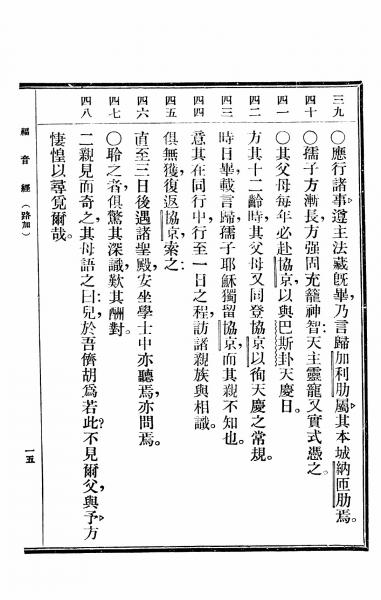 三九 ○應行諸事。遵主法藏旣畢。乃言歸加利肋屬。其本城納匝肋焉。
四十 ○孺子方漸長。方强固。充寵神智。天主靈寵。又實式憑之。
四一 ○其父母每年必赴協京。以與巴斯卦天慶日。
四二 方其十二齡時。其父母又同登協京。以徇天慶之常規。
四三 時日畢。載言歸。孺子耶穌獨留協京。而其親不知也。
四四 意其在同行中。行至一日之程。訪諸親族與相識。
四五 俱無獲。復返協京。索之。
四六 直至三日後。遇諸聖殿。安坐學士中。亦聽焉。亦問焉。
四七 ○聆之者。俱驚其深識。歎其酬對。
四八 二親見而奇之。其母語之曰。兒。於吾儕胡爲若此?不見爾父與予。方
悽惶以尋覓爾哉。
福音經(路加)
一五